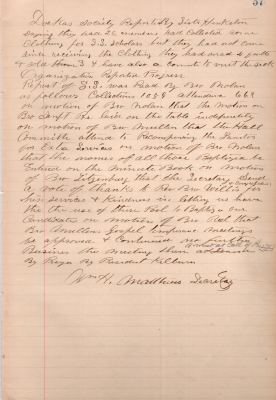 Dorcas Society Reported By Sister Hankston
saying they had 22 members had Collected some
Clothing for S.S. scholars but they had not come
since receiving the Clothing they had made quilts
& sold them & have also a Committe to visit the sick
Organization Reported Progress
Report of S.S. was Read By Bro Nolan
as follows Collections Attendance 669
on motion of Bro Nolan that the motion on
Bro be laid on the table indefinitly
on motion of Bro Mullen that the Hall
Committe attend to Recompensing the Janitor
for Extra Services on motion of Bro Nolan
that the names of all those Baptized be
Entered on the Minute Book on motion
of Bro that the Secretary Send
a vote of thanks to Rev Bro Willis for
his services & Kindness in letting us have
the use of there Pool to Baptize our
Candidates on motion of Bro that
Bro Mullens Gospel temprance Meetings
be approved & Continued no further
Business the Meeting then adjourned
By Prayer By President Kilburn
Wm H. Matthews Secretary